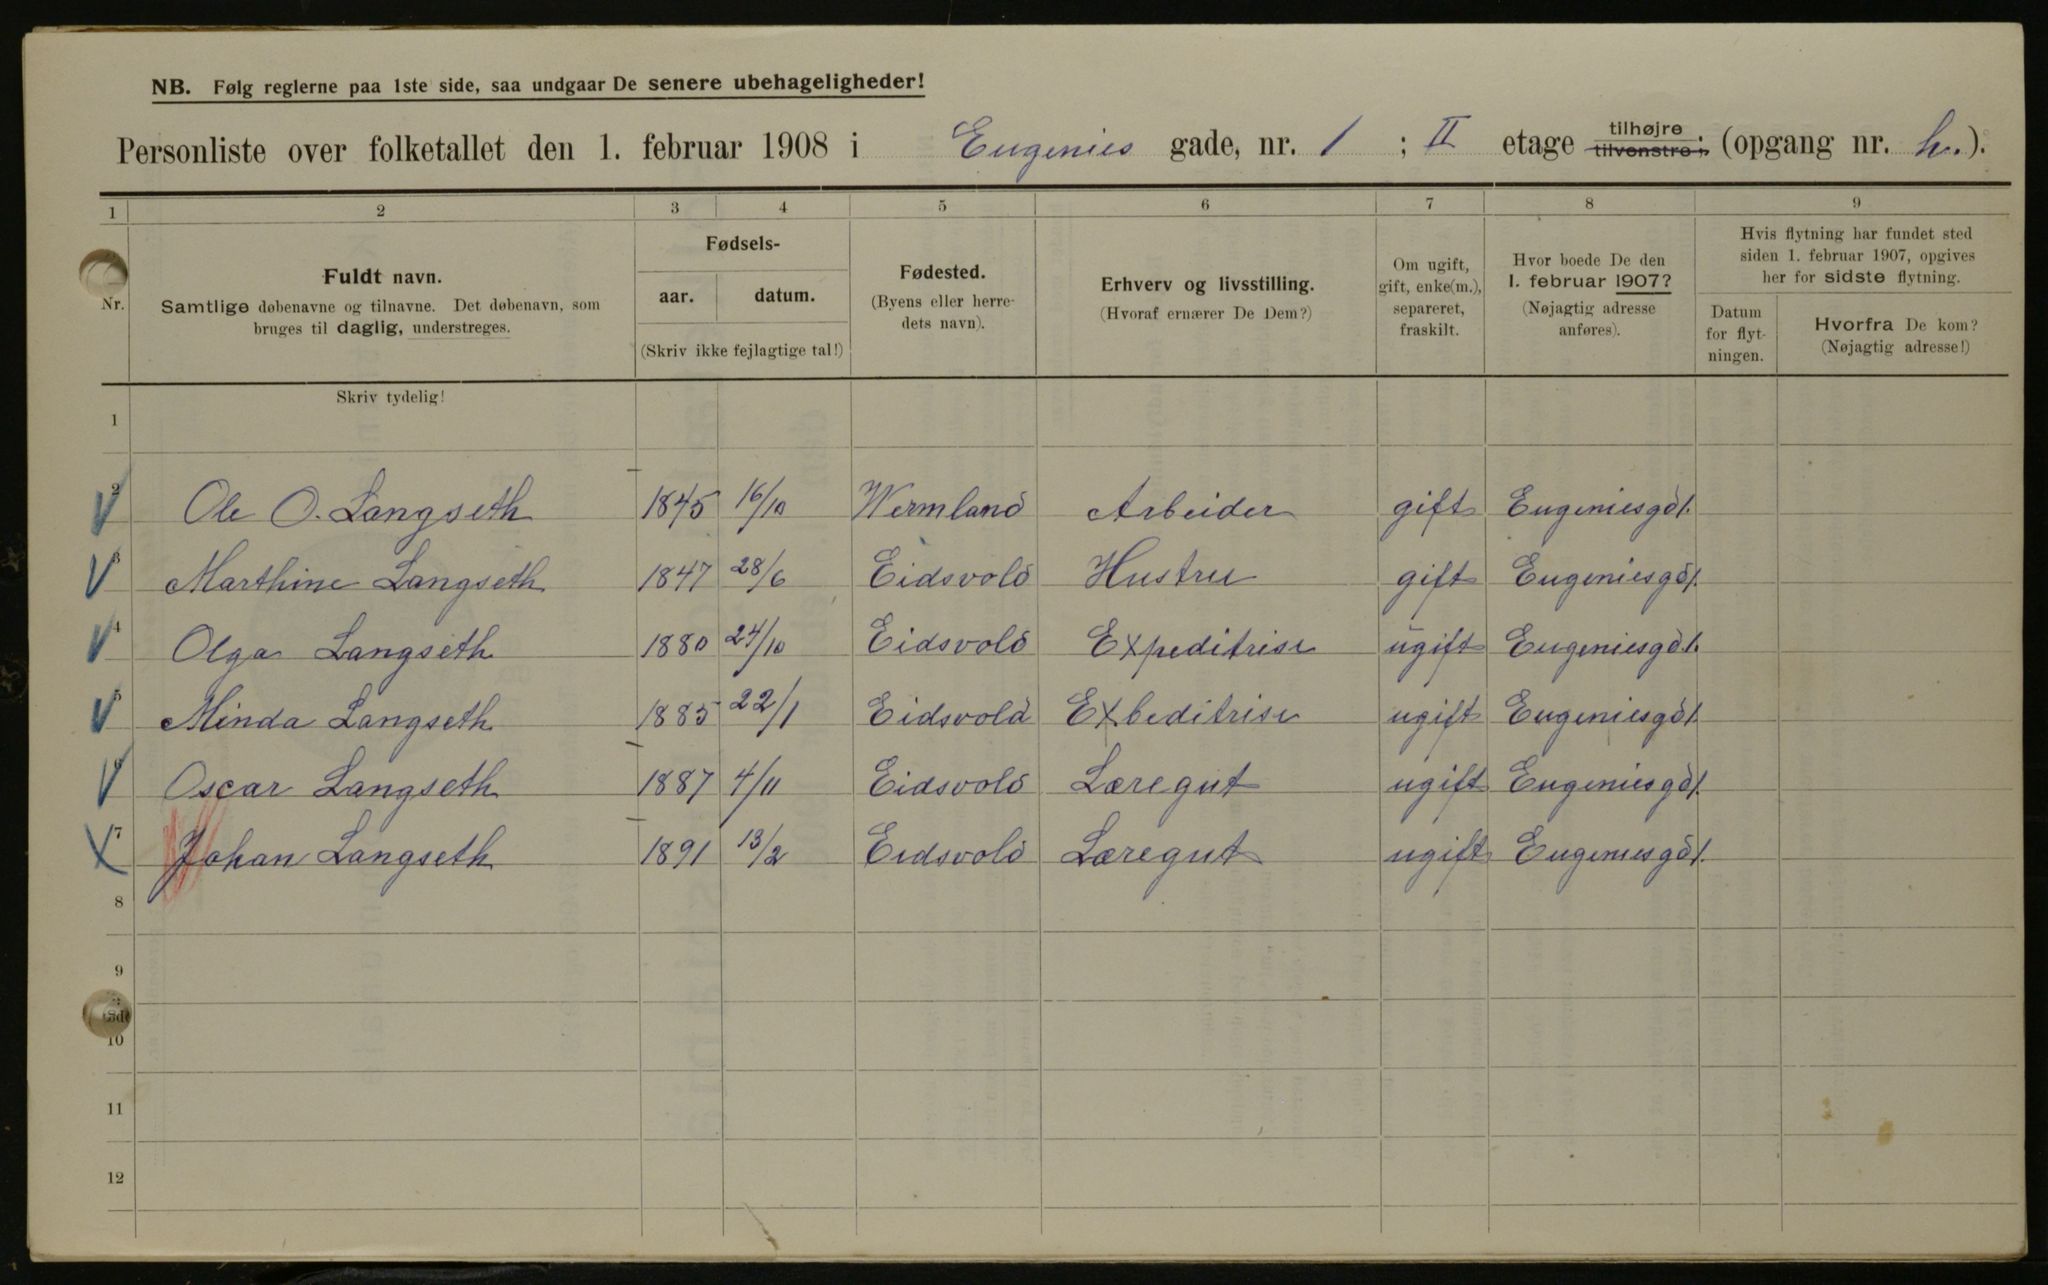 NB. Følg reglerne paa 1ste side, saa undgaar De senere ubehageligheder!
Personliste over folketallet den 1. februar 1908 i Eugenies gade, nr. 1 ; II etage tilhøjre tilvenstre; (opgang nr. h.).
1 2 3 4 5 6 7 8 9
Nr.
Fuldt navn.
Samtlige døbenavne og tilnavne. Det døbenavn, som
bruges til daglig, understreges.
Fødsels-
aar. datum.
(Skriv ikke fejlagtige tal!)
Fødested.
(Byens eller herre-
dets navn).
Erhverv og livsstilling.
(Hvoraf ernærer De Dem?)
Om ugift,
gift, enke(m.),
separeret,
fraskilt.
Hvor boede De den
1. februar 1907?
(Nøjagtig adresse
anføres).
Hvis flytning har fundet sted
siden 1. februar 1907, opgives
her for sidste flytning.
Datum
for flyt-
ningen.
Hvorfra De kom?
(Nøjagtig adresse!)
Skriv tydelig!
1
2 Ole O. Langseth 1845 16/10 Wermland Arbeider gift Eugeniesgd 1.
3 Marthine Langseth 1847 28/6 Eidsvold Hustru gift Eugeniesgd 1.
4 Olga Langseth 1880 24/10 Eidsvold Expeditrise ugift Eugeniesgd 1.
5 Minda Langseth 1885 22/1 Eidsvold Exbeditrise ugift Eugeniesgd 1.
6 Oscar Langseth 1887 4/11 Eidsvold Læregut ugift Eugeniesgd 1.
7 Johan Langseth 1891 13/2 Eidsvold Læregut ugift Eugeniesgd 1.
8
9
10
11
12